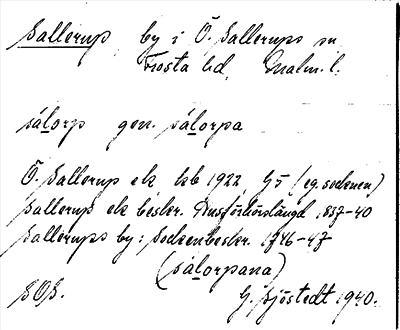 Sallerup by i Ö. Sallerups sn
Frosta hd, Malm. l.
sálorp gen. sálorpa
Ö. Sallerup ek kb 1922 G5 (eg. socknen)
Sallerup ek beskr. Husförhörslängd 1837-40
Sallerups by: Sockenbeskr. 1746-47
(sálorpana)
SOS. G. Sjöstedt 1940.